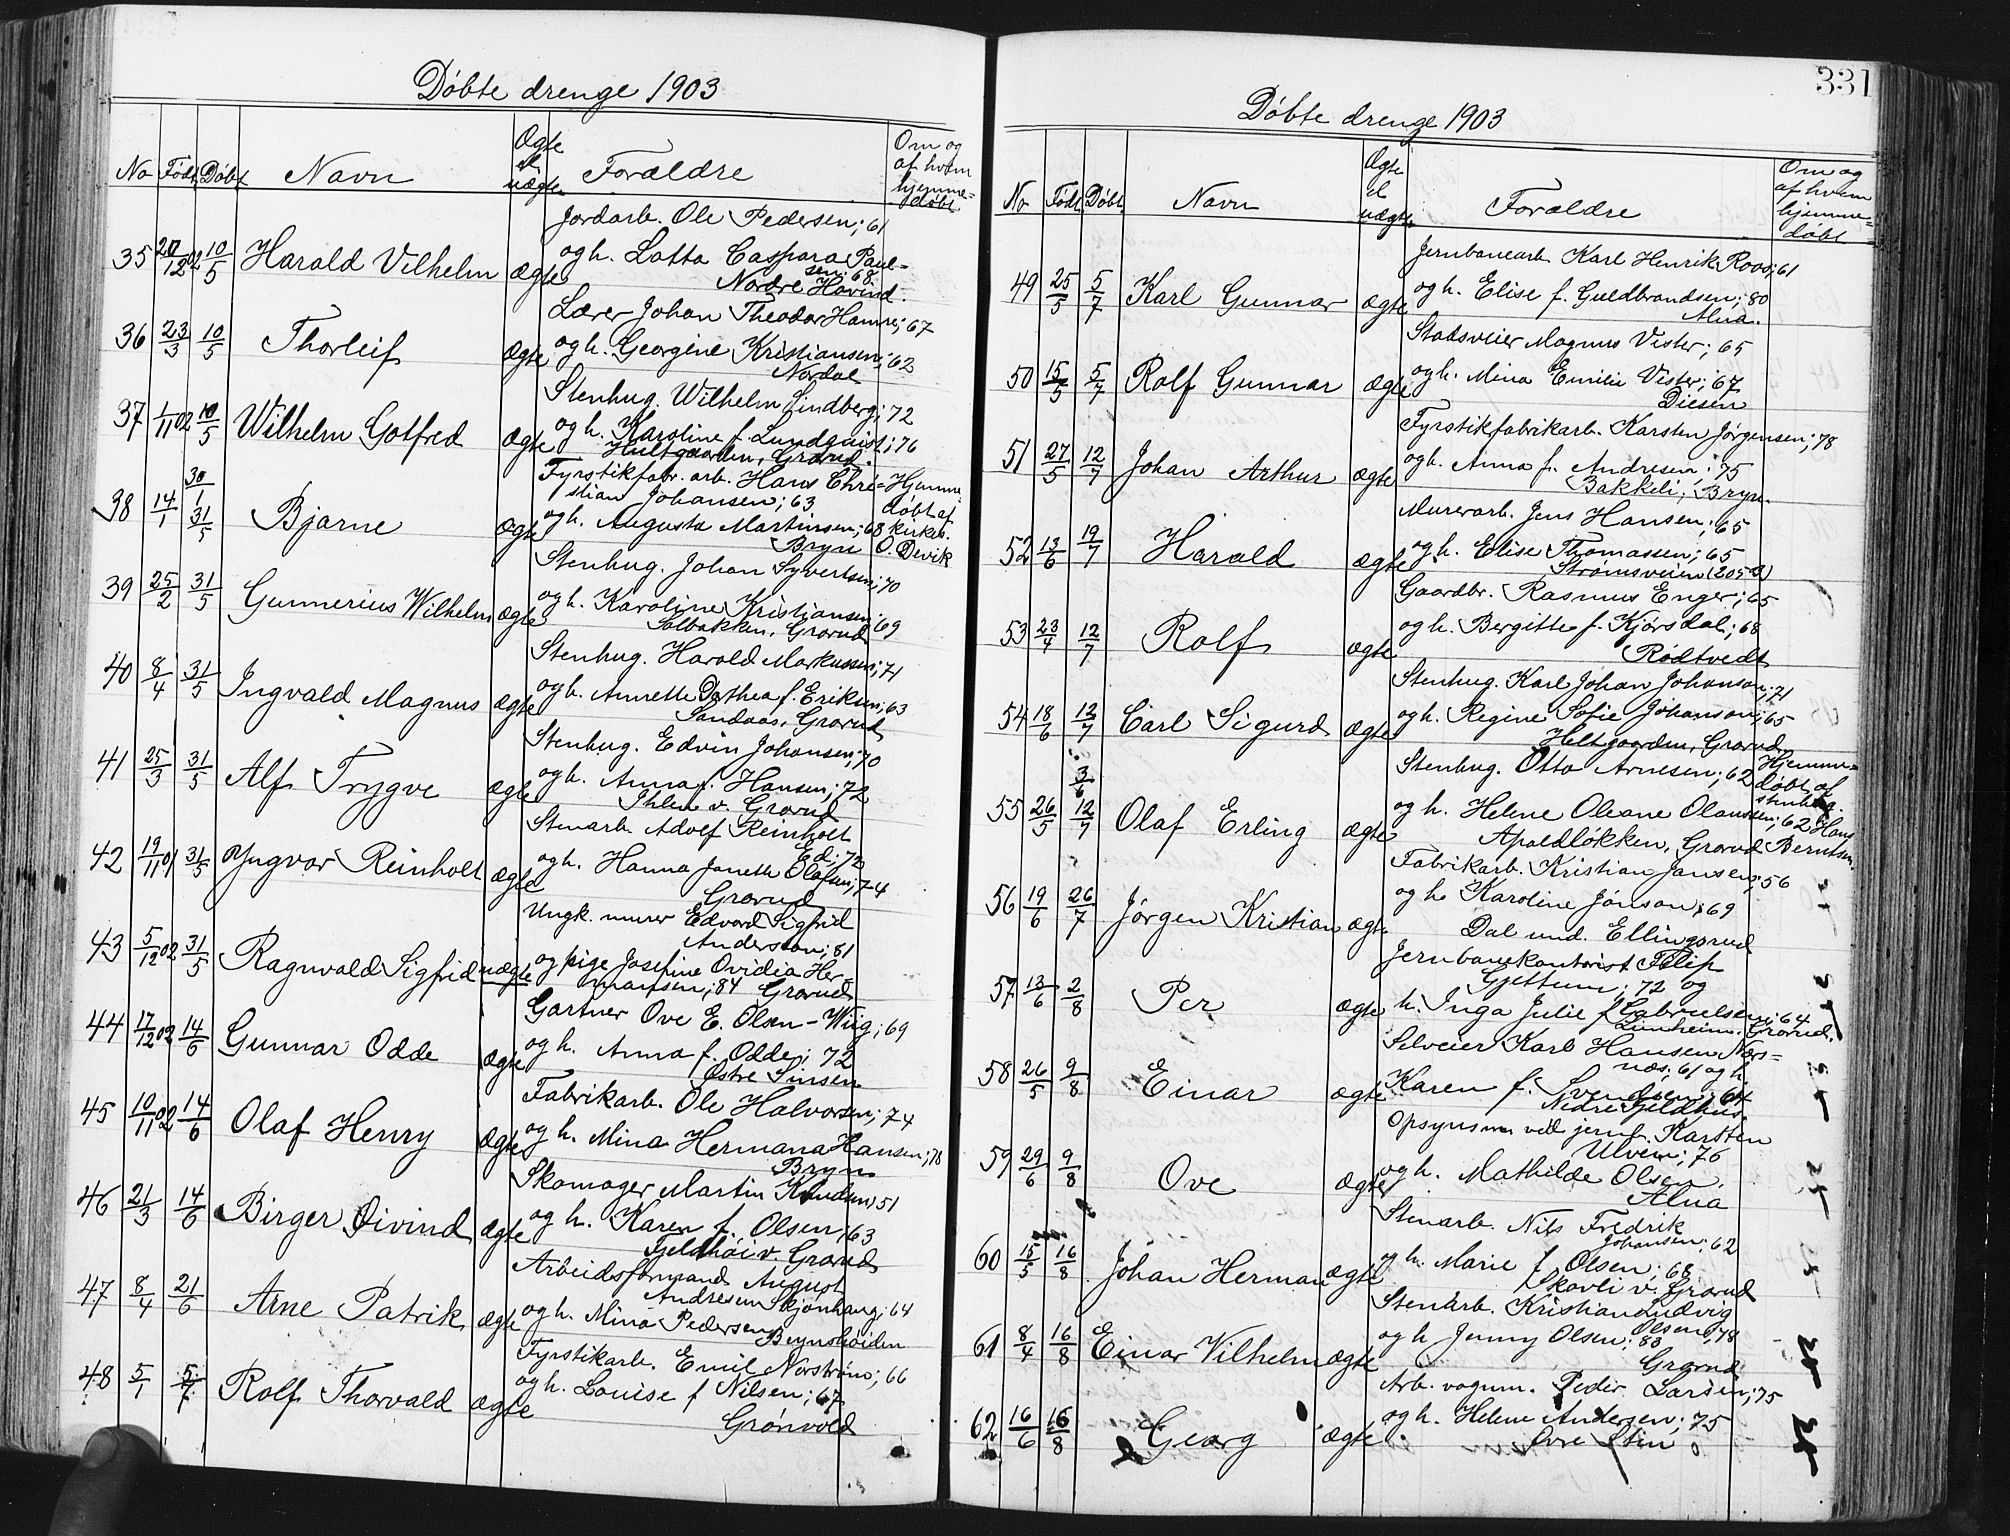 Døbte drenge 1903
No Født Døbt Navn Ægte el uægte Forældre Om og af hvem hjemme=døbt
Jordarb. Ole Pedersen; 61
35 20/12 02 10/5 Harald Vilhelm ægte og h. Lotta Caspara Paul=
sen; 68
Nordre Hovind.
Lærer Johan Theodor Hamre; 67
36 23/3 10/5 Thorleif ægte og h. Georgine Kristiansen; 62
Nordal
Stenhug. Wilhelm Lindberg; 72
37 1/11 02 10/5 Wilhelm Gotfred ægte og h. Karoline f. Lundqvist; 76
Hultgaarden, Grorud.
Fyrstikfabr. arb. Hans Chri= Hjemme
stian Johansen; 63 døbt af
38 14/1 30/1 31/5 Bjarne ægte og h. Augusta Martinsen; 68 kirkes.
Bryn O. Devik
Stenhug. Johan Syvertsen; 70
39 25/2 31/5 Gunnerius Wilhelm ægte og h. Karoline Kristiansen; 69
Solbakken, Grorud
Stenhug. Harald Markussen; 71
40 8/4 31/5 Ingvald Magnus ægte og h. Annette Dothea f. Eriksen; 63
Sandaas, Grorud
Stenhug. Edvin Johansen; 70
41 25/3 31/5 Alf Trygve ægte og h. Anna f. Hansen; 72
Ihlen v. Grorud
Stenarb. Adolf Reinholt
Ed; 72
42 19/11 01 31/5 Yngvar Reinholt ægte og h. Hanna Janette Olafsen; 74
Grorud
Ungk. murer Edvard Sigfrid
Andersson; 81
43 5/12 02 31/5 Ragnvald Sigfrid uægte og pige Josefine Ovidia Her=
mansen; 84 Grorud
Gartner Ove E. Olsen-Wiig; 69
44 17/12 02 14/6 Gunnar Odde ægte og h. Anna f. Odde; 72
Østre Sinsen
Fabrikarb. Ole Halvorsen; 74
45 10/11 02 14/6 Olaf Henry ægte og h. Mina Hermana Hansen; 78
Bryn
Skomager Martin Knudsen 51
46 21/3 14/6 Birger Øivind ægte og h. Karen f. Olsen; 63
Fjeldhøi v. Grorud
Arbeidsformand August
Andresen Skjønhaug; 64
47 8/4 21/6 Arne Patrik ægte og h. Mina Pedersen
Brynshøiden
Fyrstikarb. Emil Norstrøm; 66
48 5/1 5/7 Rolf Thorvald ægte og h. Louise f Nilsen; 67
Grønvold
331
Døbte drenge 1903
No Født Døbt Navn Ægte el uægte Forældre Om og af hvem hjemme=døbt
Jernbanearb. Karl Henrik Roos; 61
49 25/5 5/7 Karl Gunnar ægte og h. Elise f. Guldbrandsen; 80
Alna.
Stadsveier Magnus Vister; 65
50 15/5 5/7 Rolf Gunnar ægte og h. Mina Emilie Vister; 67
Diesen
Fyrstikfabrikarb. Karsten Jørgensen; 78
51 27/5 12/7 Johan Arthur ægte og h. Anna f. Andresen; 75
Bakkeli, Bryn.
Murerarb. Jens Hansen; 65
52 13/6 19/7 Harald ægte og h. Elise Thomassen; 65
Strømsveien (205 B)
Gaardbr. Rasmus Enger; 65
53 23/4 12/7 Rolf ægte og h. Bergitte f. Kjørsdal; 68
Rødtvedt
Stenhug. Karl Johan Johanson; 71
54 18/6 12/7 Carl Sigurd ægte og h. Regine Sofie Johanson; 65
Heltgaarden, Grorud.
Hjemme=
Stenhug. Otto Arnesen; 62 døbt af
stenhug.
55 26/5 3/6 12/7 Olaf Erling ægte og h. Helene Oleane Olaussen; 62 Hans
Apaldløkken, Grorud Berntsen.
Fabrikarb. Kristian Jansen; 56
56 19/6 26/7 Jørgen Kristian ægte og h. Karoline Jonson; 69
Dal und. Ellingsrud
Jernbanekontorist Filip
Gjettum; 72 og
57 13/6 2/8 Per ægte h. Inga Julie f Gabrielsen; 64
Lunheim, Grorud.
Selveier Karl Hansen Næs=
næs; 61 og h.
58 26/5 9/8 Einar ægte Karen f. Svendsen; 64
Nedre Fjeldhus
Opsynsm ved jernb. Karsten
Ulven; 76
59 29/6 9/8 Ove ægte og h. Mathilde Olsen.
Alna
Stenarb. Nils Fredrik
Johansen; 62
60 15/5 16/8 Johan Herman ægte og h. Marie f Olsen; 68
Skovli v. Grorud
Stenarb. Kristian Ludvig
Olsen; 78
61 8/4 16/8 Einar Vilhelm ægte og h Jenny Olsen; 83
Grorud
Arb. vognm. Peder Larsen; 75
62 16/6 16/8 Georg ægte og h. Helene Andersen; 75
Øvre Sten